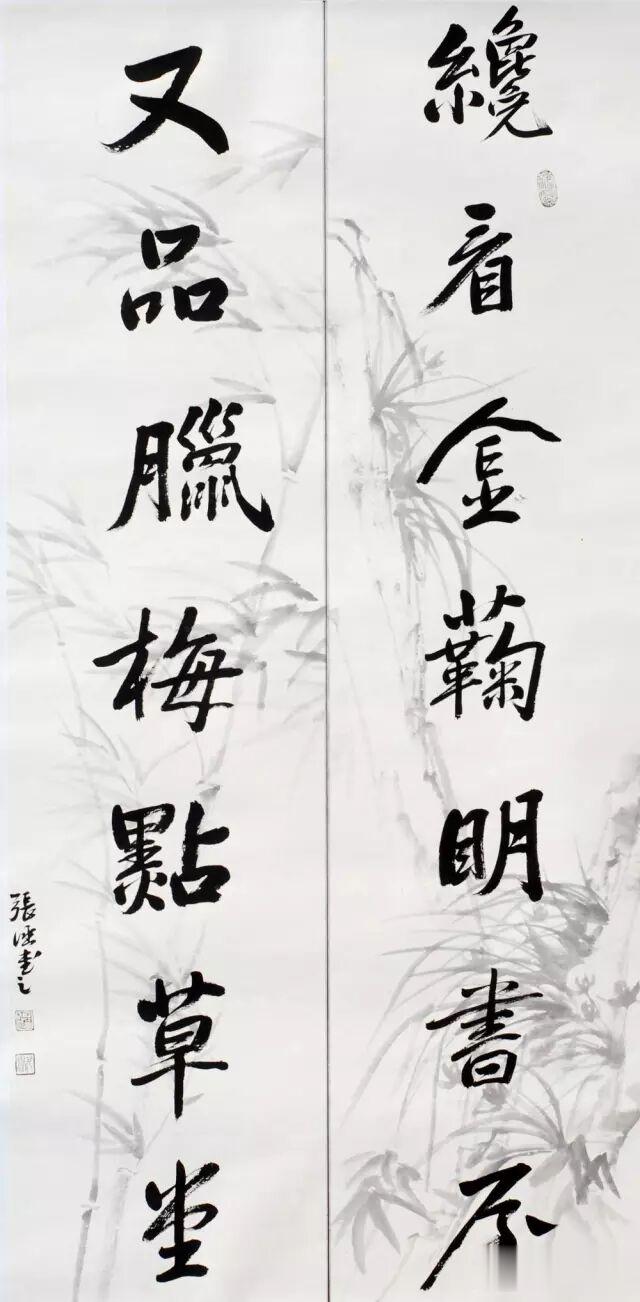 纔看金蘜明書屋
又品臘梅點草堂
張書之